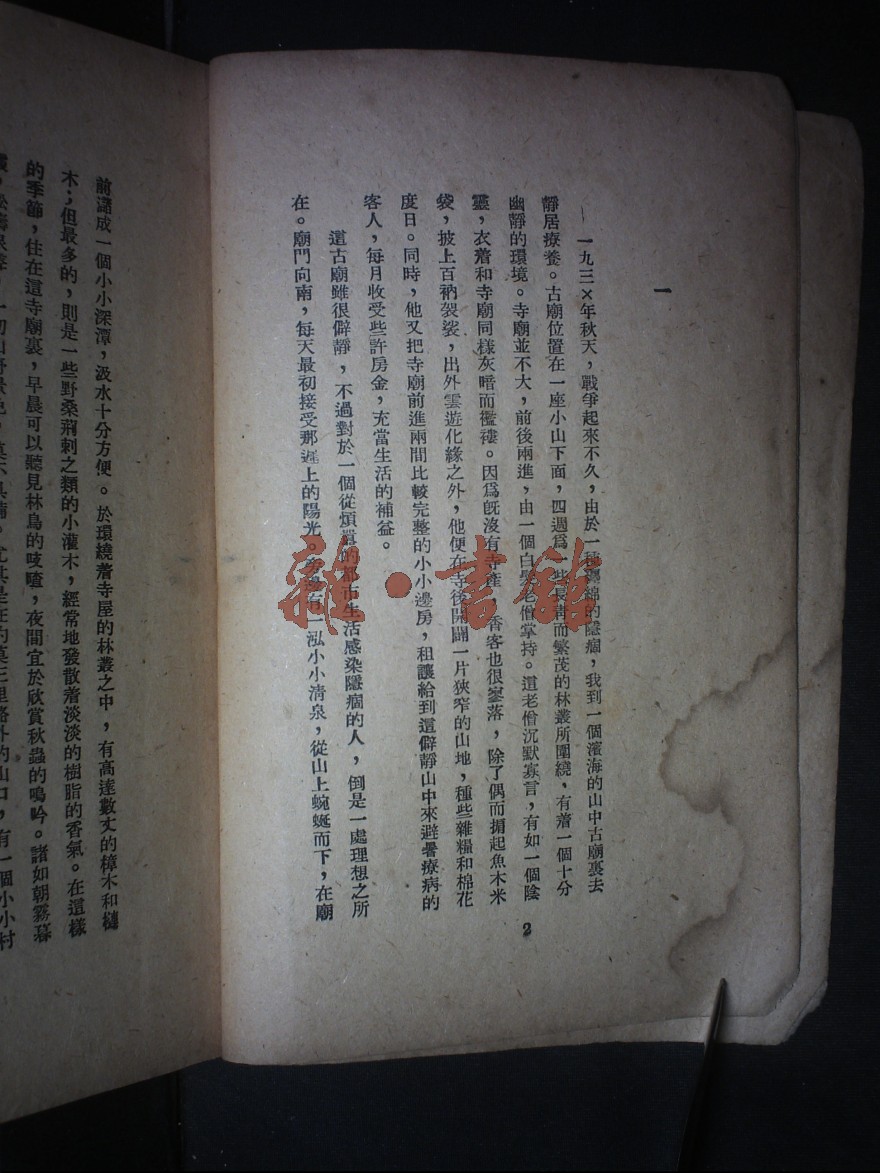 一
一九三×年秋天，戰爭起來不久，由於一種纏綿的隱痼，我到一個濱海的山中古廟裏去
靜居療養。古廟位置在一座小山下面，四週爲一些長靑而繁茂的林叢所圍繞，有着一個十分
幽靜的環境。寺廟並不大，前後兩進，由一個白鬚老僧掌持。這老僧沉默寡言，有如一個陰
靈，衣着和寺廟同樣灰暗而襤褸。因爲旣沒有寺產 香客也很寥落，除了偶而揹起魚木米
袋，披上百衲袈裟，出外雲遊化緣之外，他便在寺後開闢一片狹窄的山地，種些雜糧和棉花
度日。同時，他又把寺廟前進兩間比較完整的小小邊房，租讓給到這僻靜山中來避暑療病的
客人，每月收受些許房金，充當生活的補益。
這古廟雖很僻靜，不過對於一個從煩囂的都市生活感染隱痼的人，倒是一處理想之所
在。廟門向南，每天最初接受那遲上的陽光。旁邊有一泓小小清泉，從山上蜿蜒而下，在廟
2
前瀦成一個小小深潭，汲水十分方便。於環繞着寺屋的林叢之中，有高達數丈的樟木和槭
木；但最多的，則是一些野桑荊刺之類的小灌木，經常地發散着淡淡的樹脂的香氣。在這樣
的季節，住在這寺廟裏，早晨可以聽見林鳥的吱喳，夜間宜於欣賞秋蟲的鳴吟。諸如朝霧暮
雜·書館